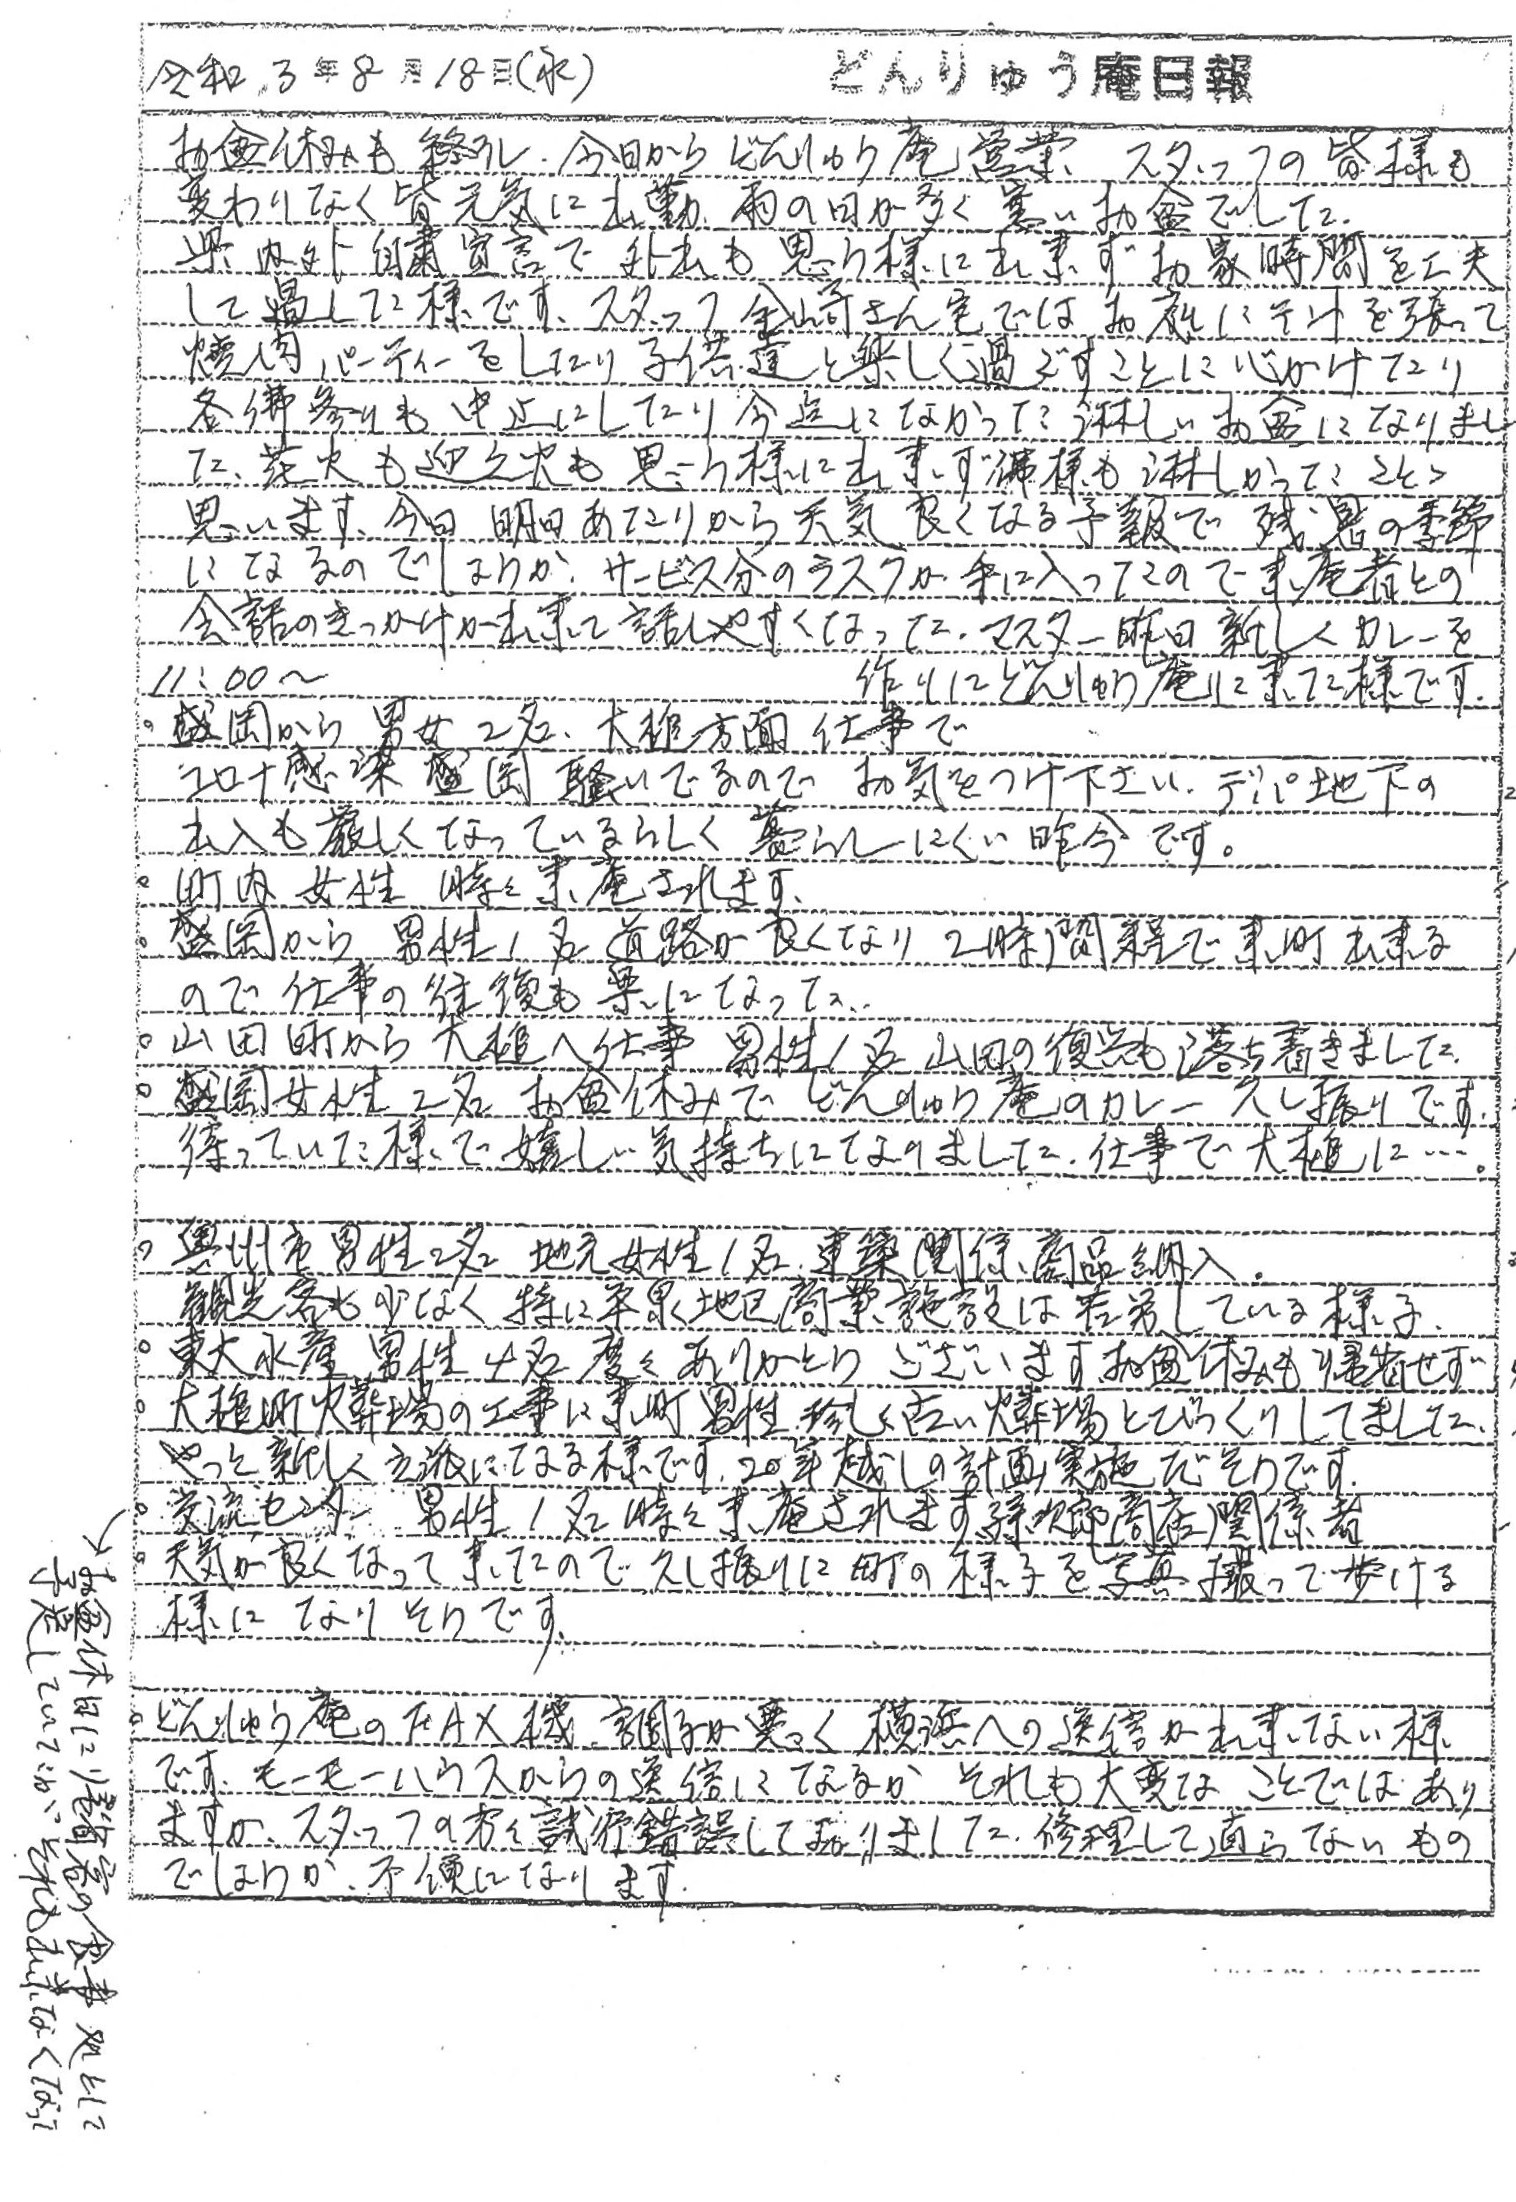 令和3年8月18日(水) どんりゅう庵日報
お盆休みも終りし、今日からどんりゅう庵営業、スタッフの皆様も
変わりなく皆元気に出勤、雨の日が多く寒いお盆でした。
県内外自粛宣言で外出も思う様に出来ずお家時間を工夫
して過した様です、スタッフ 崎さん宅ではお庭にテントを張って
焼肉パーティーをしたり子供達と楽しく過ごすことに心がけたり
各 参りも中止にしたり今 になかった淋しいお盆になりまし
た、花火も迎え火も思う様に出来ず佛様も淋しかったことと
思います、今日明日あたりから天気良くなる予報で残暑の季節
になるのでしょうか、サービス分のラスクが手に入ったので来庵者との
会話のきっかけが出来て話しやすくなった、マスター昨日新しくカレーを
作りにどんりゅう庵に来た様です。
11:00〜
。盛岡から男女2名、大槌方面仕事で
コロナ感染盛岡騒いでるのでお気をつけ下さい、デパ地下の
出入も厳しくなっているらしく暮らしにくい昨今です。
。町内女性 時々来庵されます、
。盛岡から男性1名道路が良くなり2時間程で来町出来る
ので仕事の往復も楽になった、
。山田町から大槌へ仕事 男性1名 山田の復興も落ち着きました、
。盛岡女性2名お盆休みでどんりゅう庵のカレー久し振りです、
待っていた様で嬉しい気持ちになりました、仕事で大槌に…。
。奥州市男性2名 地元女性1名、建築関係商品納入。
観光客も少なく特に平泉地区商業施設は苦労している様子、
。東大水産男性4名度々ありがとうございますお盆休みも帰省せず
。大槌町火葬場の工事に来町男性 珍しく古い火葬場とびっくりしてました、
やっと新しく立派になる様です、20年越しの計画実施だそうです、
。交流センター 男性1名時々来庵されます孫次郎商店関係者
。天気が良くなって来たので久し振りに町の様子を写真撮って歩ける
様になりそうです、
。どんりゅう庵のFAX機、調子が悪く横浜への送信が出来てない様
です、モーモーハウスからの送信になるがそれも大変なことではあり
ますが、スタッフの方々試行錯誤しておりました、修理して直らないもの
でしょうか、不便になります、
→お盆休日に り 客の食事処として
予定していたが、それも出来なくなって